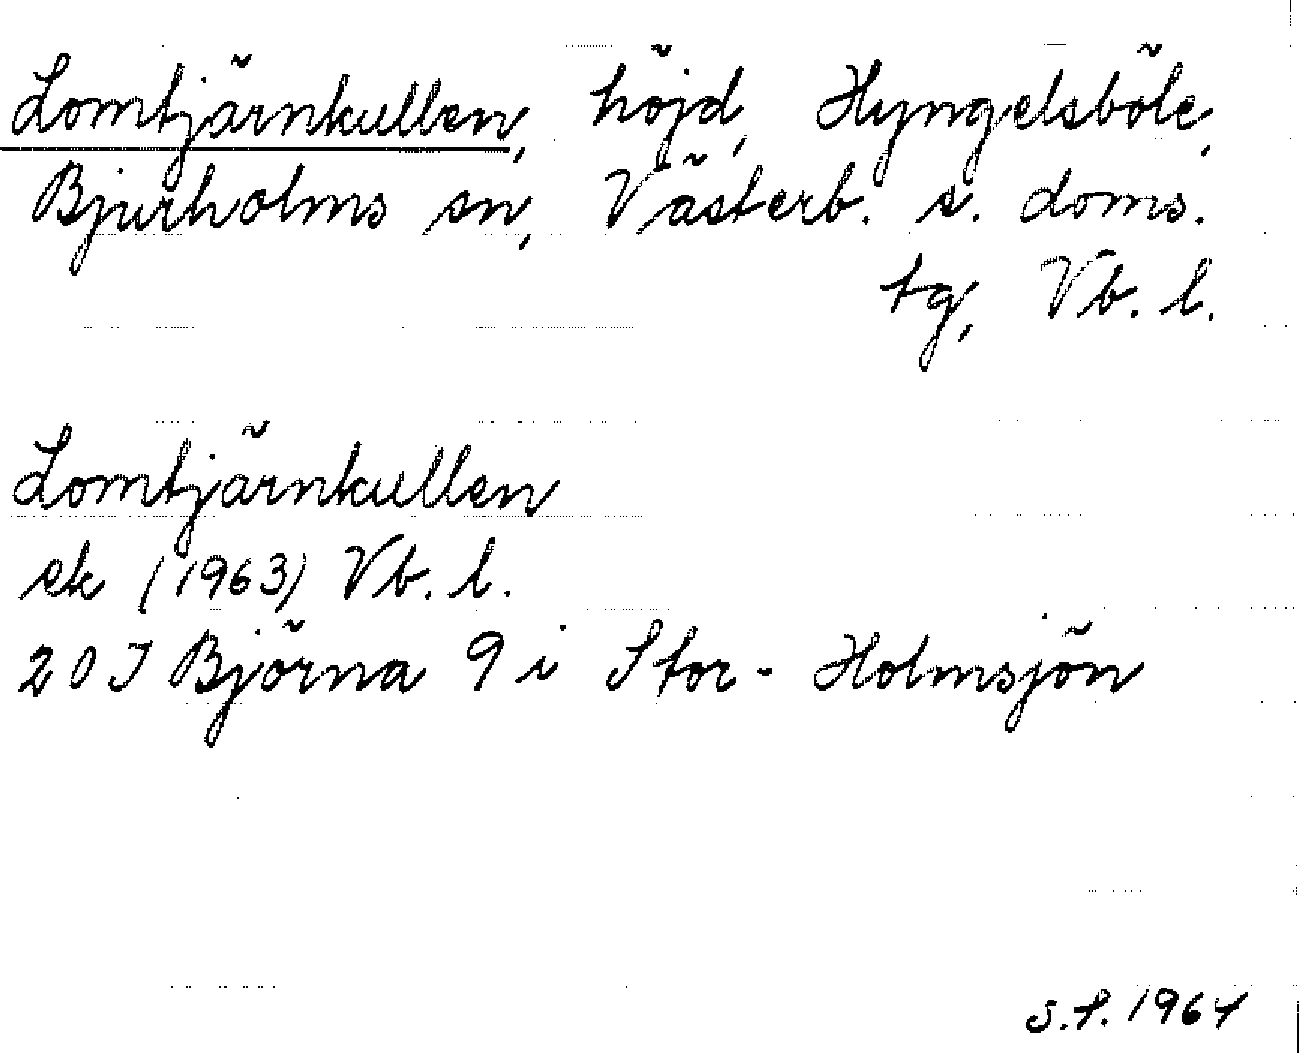 Lomtjärnkullen, höjd, Hyngelsböle,
Bjurholms sn, Västerb. s. doms.
tg, Vb. l.
Lomtjärnkullen
ek (1963) Vb. l.
20 J Björna 9 i Stor-Holmsjön
S.F. 1964